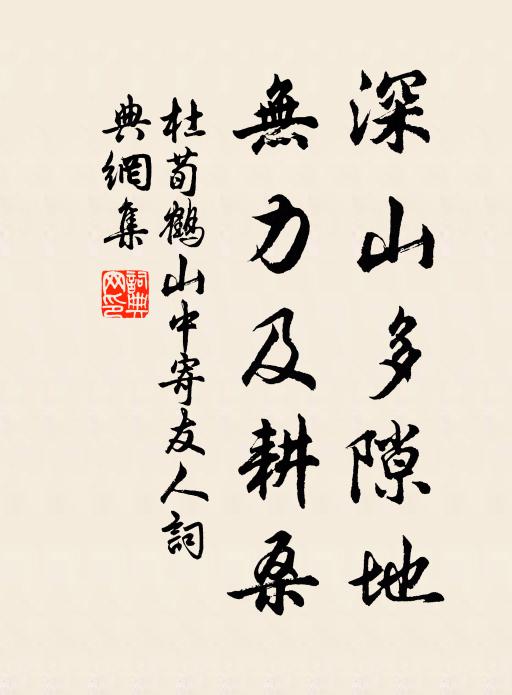 深山多隙地
無力及耕桑
杜荀鶴山中寄友人詞
典網集
詞典網印